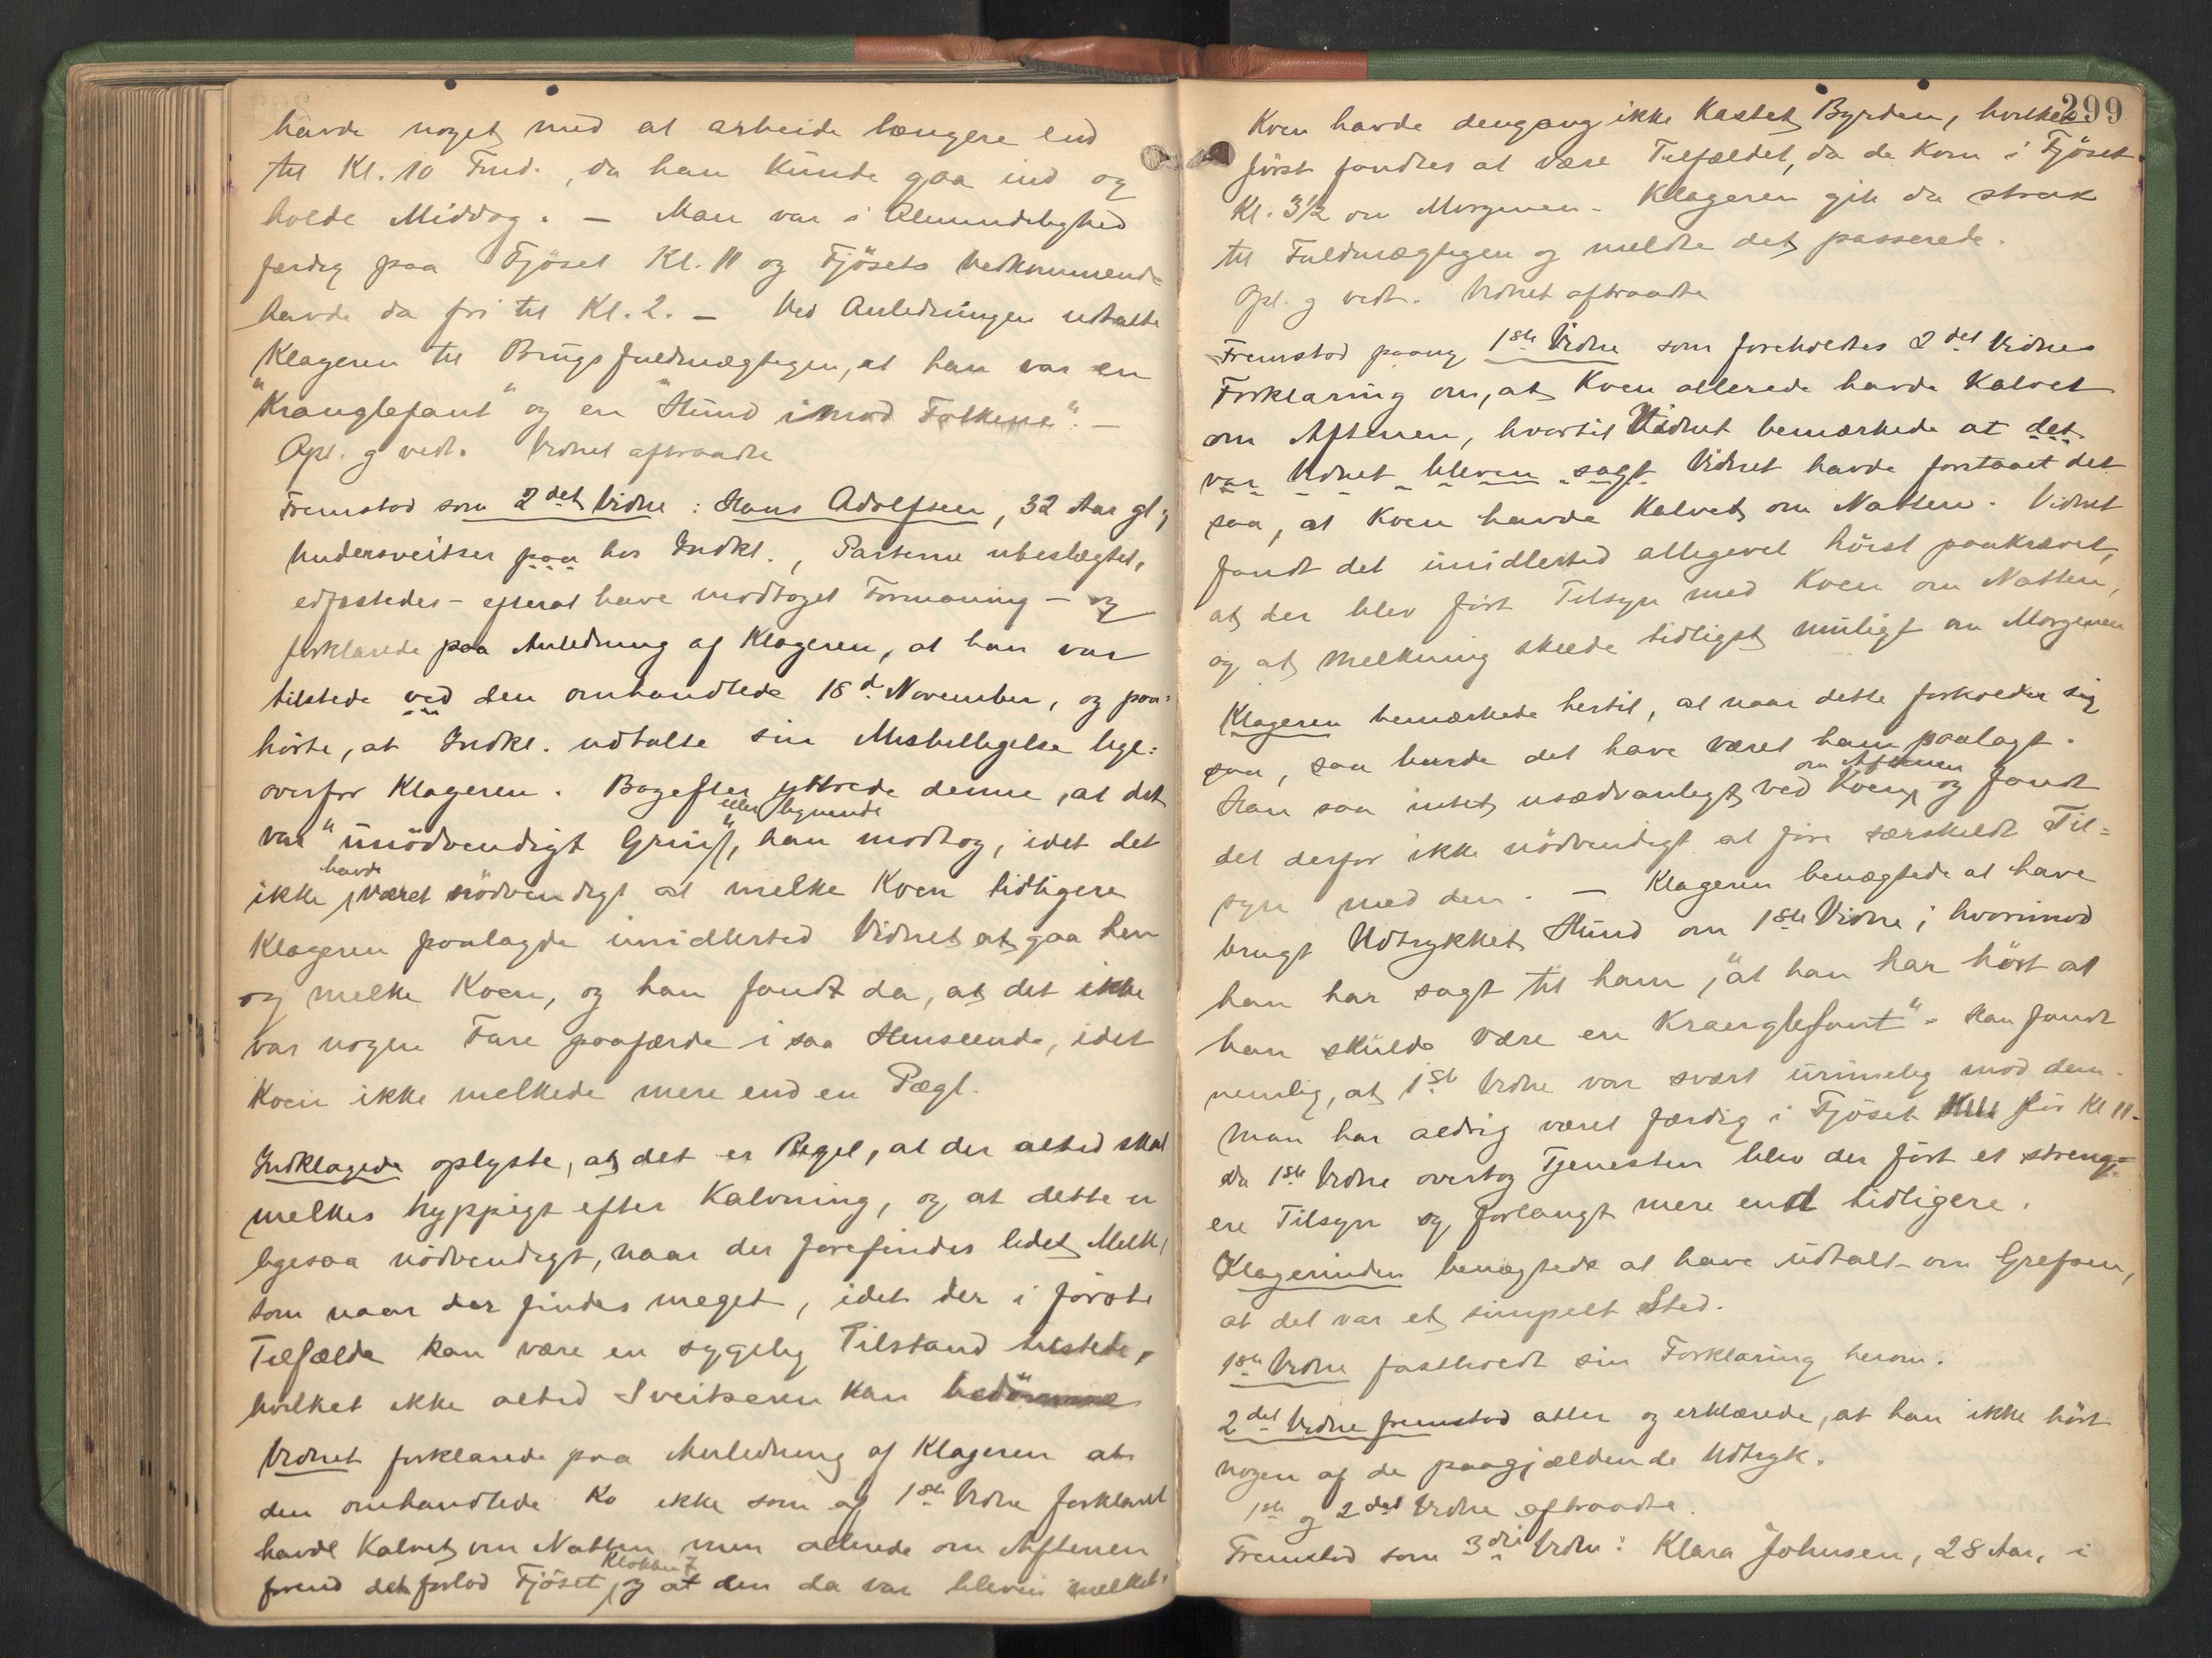 havde noget med at arbeide længere end
til Kl. 10 Fmd., da han kunde gaa ind og
holde Middag. — Man var i Almindelighed
færdig paa Fjöset Kl. 11 og Fjösets Vedkommende
havde da fri til Kl. 2. — Ved Anledningen udtalte
Klageren til Brugsfuldmægtigen, at han var en
"Kranglefant" og en "Hund imod Folkene". —
Opl. g vedt. Vidnet aftraadte
Fremstod som 2det Vidne: Hans Adolfsen, 32 Aar gl.,
Undersveitser paa hos Indkl., Parterne ubeslægtet,
edfæstedes – efterat have modtaget Formaning – og
forklarede paa Anledning af Klageren, at han var
tilstede ved den omhandlede 18d. November, og paa=
hörte, at Indkl. udtalte sin Misbilligelse lige=
overfor Klageren. Bagefter yttrede denne, at det
eller lignende
var "unödvendigt Grin", han modtog, idet det
havde
ikke været nödvendigt at melke Koen tidligere
Klageren paalagde imidlertid Vidnet at gaa hen
og melke Koen, og han fandt da, at det ikke
var nogen Fare paafærde i saa Henseende, idet
Koen ikke melkede mere end en Pægl.
Indklagede oplyste, at det er Regel, at der altid skal
melkes hyppigt efter Kalvning, og at dette er
ligesaa nödvendigt, naar der forefindes lidet Melk,
som naar der findes meget, idet der i förste
Tilfælde kan være en sygelig Tilstand tilstede,
hvilket ikke altid Sveitseren kan bedömme
Vidnet forklarede paa Anledning af Klageren at
den omhandlede Ko ikke som af 1ste Vidne forklaret
havde Kalvet om Natten men allerede om Aftenen
Klokken 7
förend det forlod Fjöset, og at den da var bleven melket.
299
Koen havde dengang ikke Kastet Byrden, hvilket
först fandtes at være Tilfældet, da de kom i Fjöset
Kl. 3½ om Morgenen. Klageren gik da strax
til Fuldmægtigen og meldte det passerede.
Opl. g vedt. Vidnet aftraadte
Fremstod paany 1ste Vidne som foreholdtes 2det Vidnes
Forklaring om, at Koen allerede havde Kalvet
om Aftenen, hvortil Vidnet bemærkede at det
var Vidnet bleven sagt Vidnet havde forstaaet det
saa, at Koen havde Kalvet om Natten. Vidnet
fandt det imidlertid alligevel höist paakrævet,
at der blev fört Tilsyn med Koen om Natten,
og at Melkning skeede tidligst muligt om Morgenen
Klageren bemærkede hertil, at naar dette forholder sig
saa, saa burde det have været ham paalagt.
om Aftenen
Han saa intet usædvanligt ved Koen, og fandt
det derfor ikke nödvendigt at före særskildt Til=
syn med den. — Klageren benægtede at have
brugt Udtrykket Hund om 1ste Vidne; hvorimod
han har sagt til ham, "at han har hört at
han skulde være en Kranglefant". Han fandt
nemlig, at 1ste Vidne var svært urimelig mod dem.
Man har aldrig været færdig i Fjöset för Kl 11.
Da 1ste Vidne overtog Tjenesten blev der fört et streng=
ere Tilsyn og forlangt mere end tidligere.
Klagerinden benægtede at have udtalt om Grefsen,
at det var et simpelt Sted.
1ste Vidne fastholdt sin Forklaring herom.
2det Vidne fremstod atter og erklærede, at han ikke hört
nogen af de paagjældende Udtryk.
1ste og 2det Vidne aftraadte.
Fremstod som 3die Vidne: Klara Johnsen, 28 Aar, i